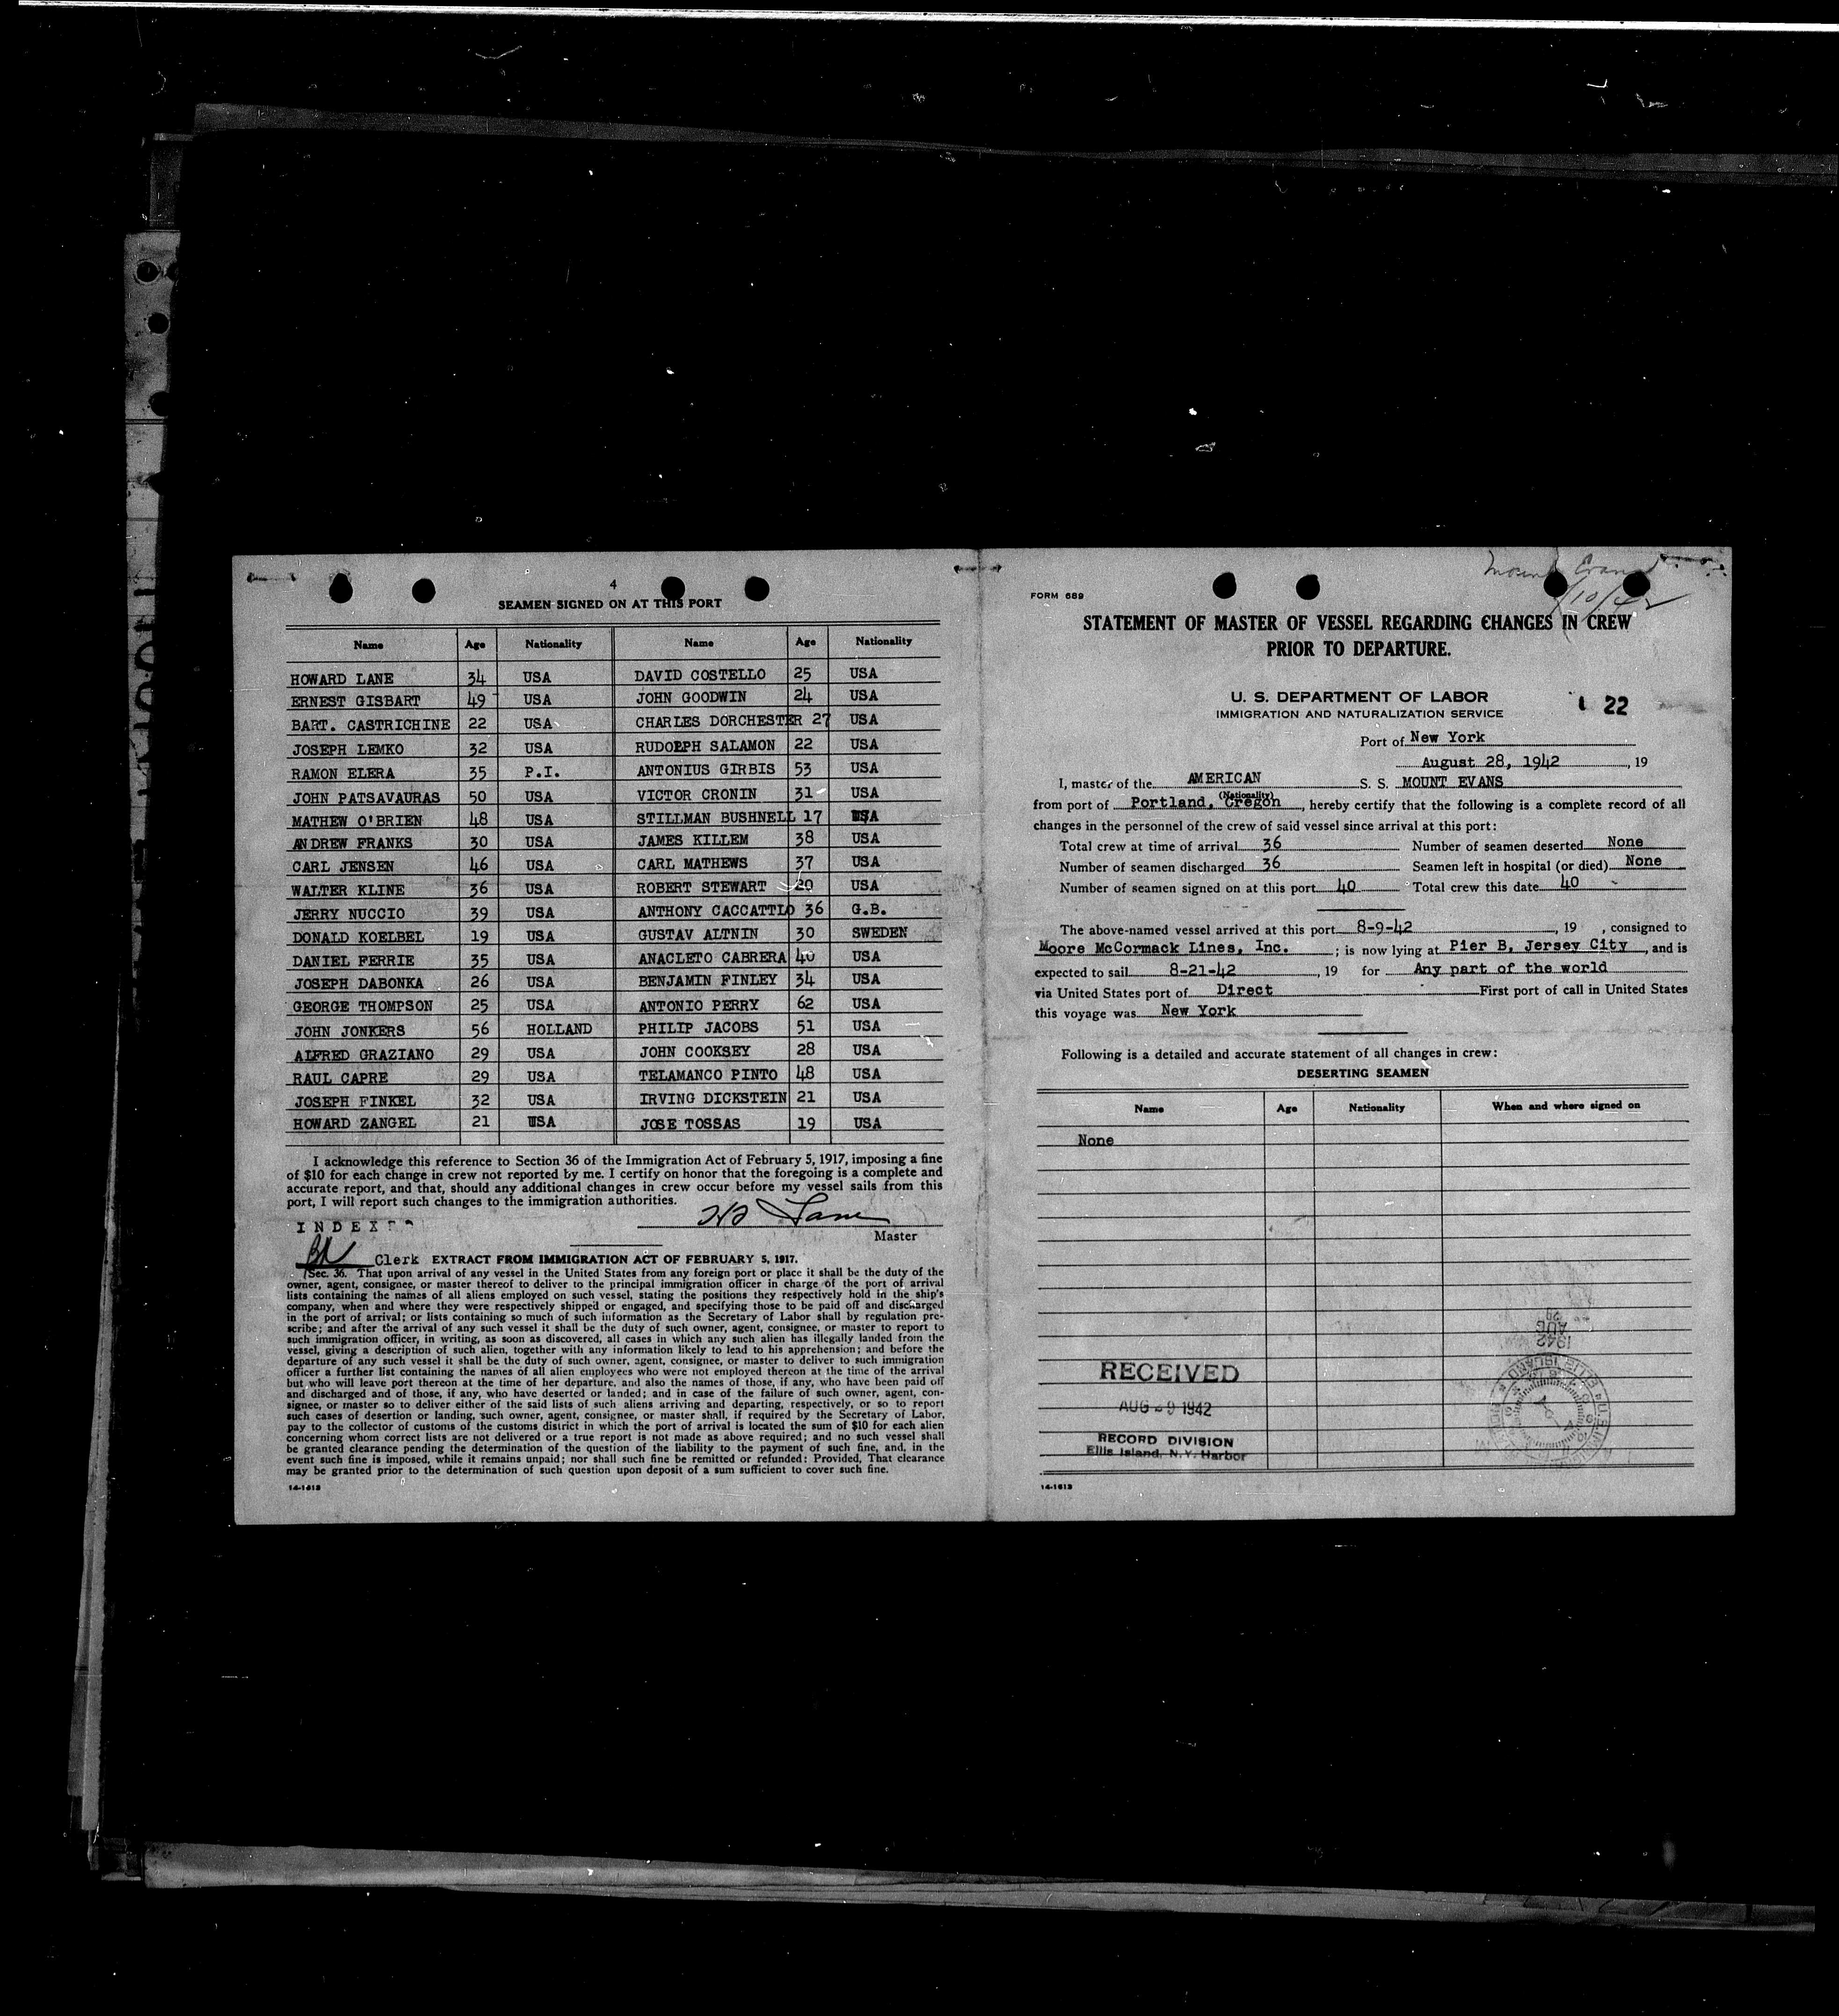 4
SEAMEN SIGNED ON AT THIS PORT
Name Age Nationality Name Age Nationality
HOWARD LANE 34 USA DAVID COSTELLO 25 USA
ERNEST GISBART 49 USA JOHN GOODWIN 24 USA
BART. CASTRICHINE 22 USA CHARLES DORCHESTER 27 USA
JOSEPH LEMKO 32 USA RUDOLPH SALAMON 22 USA
RAMON ELERA 35 P.I. ANTONIUS GIRBIS 53 USA
JOHN PATSAVAURAS 50 USA VICTOR CRONIN 31 USA
MATHEW O'BRIEN 48 USA STILLMAN BUSHNELL 17 USA
ANDREW FRANKS 30 USA JAMES KILLEM 38 USA
CARL JENSEN 46 USA CARL MATHEWS 37 USA
WALTER KLINE 36 USA ROBERT STEWART 20 USA
JERRY NUCCIO 39 USA ANTHONY CACCATTLO 36 G.B.
DONALD KOELBEL 19 USA GUSTAV ALTNIN 30 SWEDEN
DANIEL FERRIE 35 USA ANACLETO CABRERA 40 USA
JOSEPH DABONKA 26 USA BENJAMIN FINLEY 34 USA
GEORGE THOMPSON 25 USA ANTONIO PERRY 62 USA
JOHN JONKERS 56 HOLLAND PHILIP JACOBS 51 USA
ALFRED GRAZIANO 29 USA JOHN COOKSEY 28 USA
RAUL CAPRE 29 USA TELAMANCO PINTO 48 USA
JOSEPH FINKEL 32 USA IRVING DICKSTEIN 21 USA
HOWARD ZANGEL 21 USA JOSE TOSSAS 19 USA
I acknowledge this reference to Section 36 of the Immigration Act of February 5, 1917, imposing a fine
of $10 for each change in crew not reported by me. I certify on honor that the foregoing is a complete and
accurate report, and that, should any additional changes in crew occur before my vessel sails from this
port, I will report such changes to the immigration authorities.
Lane
INDEX
Master
Clerk EXTRACT FROM IMMIGRATION ACT OF FEBRUARY 5, 1917.
Sec. 36. That upon arrival of any vessel in the United States from any foreign port or place it shall be the duty of the
owner, agent, consignee, or master thereof to deliver to the principal immigration officer in charge of the port of arrival
lists containing the names of all aliens employed on such vessel, stating the positions they respectively hold in the ship's
company, when and where they were respectively shipped or engaged, and specifying those to be paid off and discharged
in the port of arrival; or lists containing so much of such information as the Secretary of Labor shall by regulation pre-
scribe; and after the arrival of any such vessel it shall be the duty of such owner, agent, consignee, or master to report to
such immigration officer, in writing, as soon as discovered, all cases in which any such alien has illegally landed from the
vessel, giving a description of such alien, together with any information likely to lead to his apprehension; and before the
departure of any such vessel it shall be the duty of such owner, agent, consignee, or master to deliver to such immigration
officer a further list containing the names of all alien employees who were not employed thereon at the time of the arrival
but who will leave port thereon at the time of her departure, and also the names of those, if any, who have been paid off
and discharged and of those, if any, who have deserted or landed; and in case of the failure of such owner, agent, con-
signee, or master so to deliver either of the said lists of such aliens arriving and departing, respectively, or so to report
such cases of desertion or landing, such owner, agent, consignee, or master shall, if required by the Secretary of Labor,
pay to the collector of customs of the customs district in which the port of arrival is located the sum of $10 for each alien
concerning whom correct lists are not delivered or a true report is not made as above required; and no such vessel shall
be granted clearance pending the determination of the question of the liability to the payment of such fine, and, in the
event such fine is imposed, while it remains unpaid; nor shall such fine be remitted or refunded: Provided, That clearance
may be granted prior to the determination of such question upon deposit of a sum sufficient to cover such fine.
14-1613
Mount Evans
FORM 689
STATEMENT OF MASTER OF VESSEL REGARDING CHANGES IN CREW
PRIOR TO DEPARTURE.
U. S. DEPARTMENT OF LABOR
IMMIGRATION AND NATURALIZATION SERVICE
22
Port of New York
August 28, 1942, 19
I, master of the AMERICAN S. S. MOUNT EVANS
(Nationality)
from port of Portland, Oregon, hereby certify that the following is a complete record of all
changes in the personnel of the crew of said vessel since arrival at this port:
Total crew at time of arrival 36 Number of seamen deserted None
Number of seamen discharged 36 Seamen left in hospital (or died) None
Number of seamen signed on at this port 40 Total crew this date 40
The above-named vessel arrived at this port 8-9-42, 19 , consigned to
Moore McCormack Lines, Inc. ; is now lying at Pier B, Jersey City, and is
expected to sail 8-21-42, 19 for Any part of the world
via United States port of Direct First port of call in United States
this voyage was New York
Following is a detailed and accurate statement of all changes in crew:
DESERTING SEAMEN
Name Age Nationality When and where signed on
None
1942
AUG
29
RECEIVED
AUG 29 1942
RECORD DIVISION
Ellis Island, N.Y. Harbor
14-1613